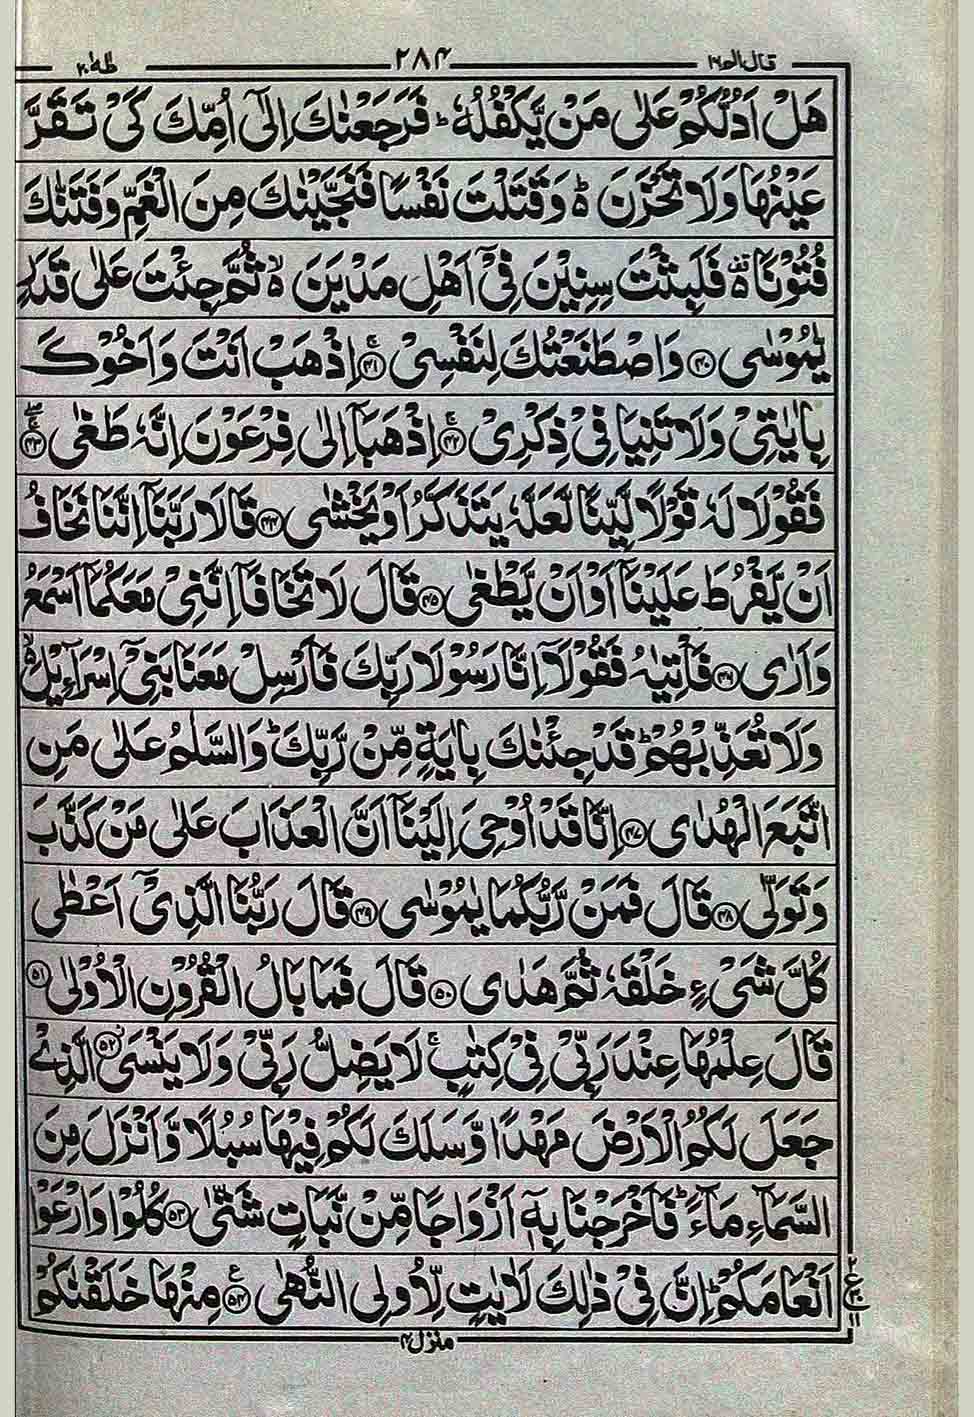 قال الم ١٦ ٢٨٤ طٰهٰ ٢٠
هَلْ اَدُلُّكُمْ عَلٰى مَنْ يَّكْفُلُهٗ ؕ فَرَجَعْنٰكَ اِلٰٓى اُمِّكَ كَىْ تَقَرَّ
عَيْنُهَا وَلَا تَحْزَنَ ۬ؕ وَقَتَلْتَ نَفْسًا فَنَجَّيْنٰكَ مِنَ الْغَمِّ وَفَتَنّٰكَ
فُتُوْنًا ۬ۥ فَلَبِثْتَ سِنِيْنَ فِىْٓ اَهْلِ مَدْيَنَ ۬ۙ ثُمَّ جِئْتَ عَلٰى قَدَرٍ
يّٰمُوْسٰى ﴿۴۰﴾ وَاصْطَنَعْتُكَ لِنَفْسِىْ ۚ‏ ﴿۴۱﴾ اِذْهَبْ اَنْتَ وَاَخُوْكَ
بِاٰيٰتِىْ وَلَا تَنِيَا فِىْ ذِكْرِىْ ۚ‏ ﴿۴۲﴾ اِذْهَبَاۤ اِلٰى فِرْعَوْنَ اِنَّهٗ طَغٰى ۖۚ‏ ﴿۴۳﴾
فَقُوْلَا لَهٗ قَوْلًا لَّيِّنًا لَّعَلَّهٗ يَتَذَكَّرُ اَوْ يَخْشٰى ﴿۴۴﴾ قَالَا رَبَّنَاۤ اِنَّنَا نَخَافُ
اَنْ يَّفْرُطَ عَلَيْنَاۤ اَوْ اَنْ يَّطْغٰى ﴿۴۵﴾ قَالَ لَا تَخَافَاۤ اِنَّنِىْ مَعَكُمَاۤ اَسْمَعُ
وَاَرٰى ﴿۴۶﴾ فَاْتِيٰهُ فَقُوْلَاۤ اِنَّا رَسُوْلَا رَبِّكَ فَاَرْسِلْ مَعَنَا بَنِىْۤ اِسْرَآءِيْلَ ۬ۙ
وَلَا تُعَذِّبْهُمْ ؕ قَدْ جِئْنٰكَ بِاٰيَةٍ مِّنْ رَّبِّكَ ؕ وَالسَّلٰمُ عَلٰى مَنِ
اتَّبَعَ الْهُدٰى ﴿۴۷﴾ اِنَّا قَدْ اُوْحِىَ اِلَيْنَاۤ اَنَّ الْعَذَابَ عَلٰى مَنْ كَذَّبَ
وَتَوَلّٰى ﴿۴۸﴾ قَالَ فَمَنْ رَّبُّكُمَا يٰمُوْسٰى ﴿۴۹﴾ قَالَ رَبُّنَا الَّذِىْۤ اَعْطٰى
كُلَّ شَىْءٍ خَلْقَهٗ ثُمَّ هَدٰى ﴿۵۰﴾ قَالَ فَمَا بَالُ الْقُرُوْنِ الْاُوْلٰى ﴿۵۱﴾
قَالَ عِلْمُهَا عِنْدَ رَبِّىْ فِىْ كِتٰبٍ ۚ لَا يَضِلُّ رَبِّىْ وَلَا يَنْسَى ﴿۵۲﴾ الَّذِىْ
جَعَلَ لَكُمُ الْاَرْضَ مَهْدًا وَّسَلَكَ لَكُمْ فِيْهَا سُبُلًا وَّاَنْزَلَ مِنَ
السَّمَآءِ مَآءً ؕ فَاَخْرَجْنَا بِهٖۤ اَزْوَاجًا مِّنْ نَّبَاتٍ شَتّٰى ﴿۵۳﴾ كُلُوْا وَارْعَوْا
اَنْعَامَكُمْ ؕ اِنَّ فِىْ ذٰلِكَ لَاٰيٰتٍ لِّاُولِى النُّهٰى ﴿۵۴﴾ مِنْهَا خَلَقْنٰكُمْ
منزل ۴